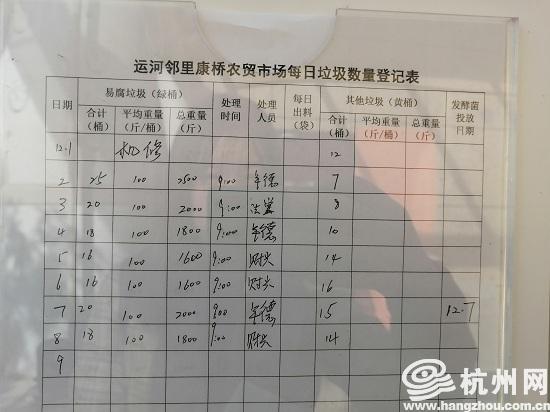 运河邻里康桥农贸市场每日垃圾数量登记表
日期 易腐垃圾（绿桶） 处理时间 处理人员 每日出料（袋） 其他垃圾（黄桶） 发酵菌投放日期
合计（桶） 平均重量（斤/桶） 总重量（斤） 合计（桶） 平均重量（斤/桶） 总重量（斤）
12.1 机修 12
2 25 100 2500 9:00 7
3 20 100 2000 9:00 8
4 18 100 1800 9:00 10
5 16 100 1600 9:00 财兴 14
6 16 100 1600 9:00 财兴 16
7 20 100 2000 9:00 15 12.7
8 18 100 1800 9:00 财兴 14
9
杭州网
www.hangzhou.com.cn